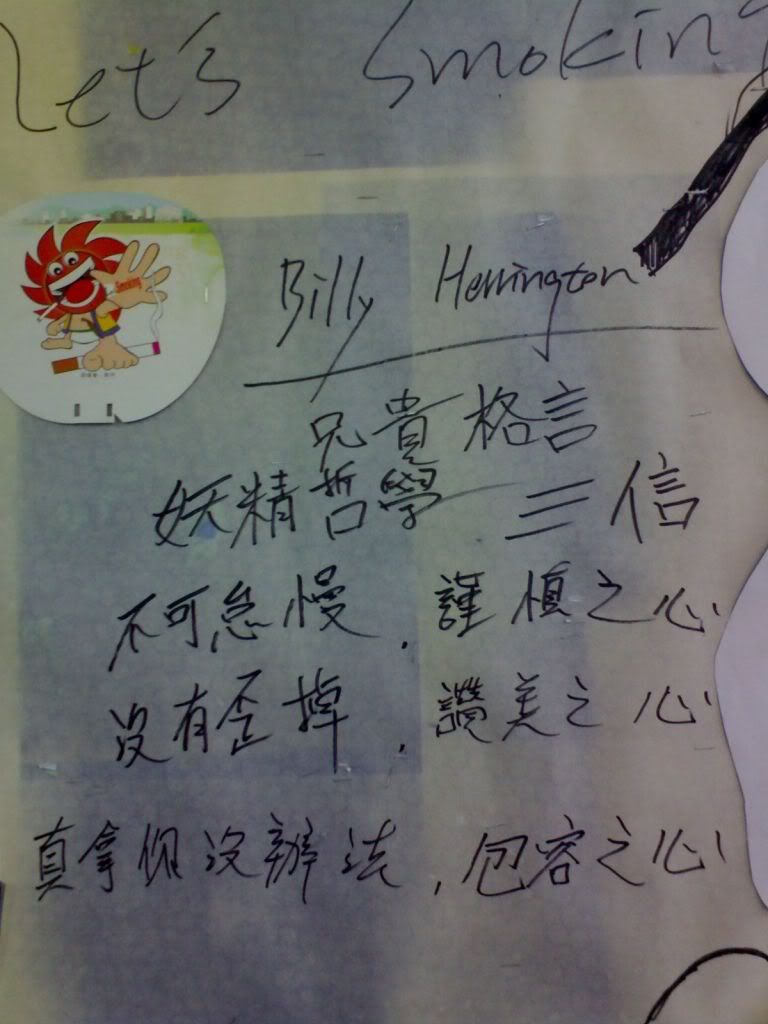 Let's Smoking
Smoking
Billy Herrington
兄貴格言
妖精哲學 三信
不可怠慢，謹慎之心
沒有歪掉，讚美之心
真拿你沒辦法，包容之心